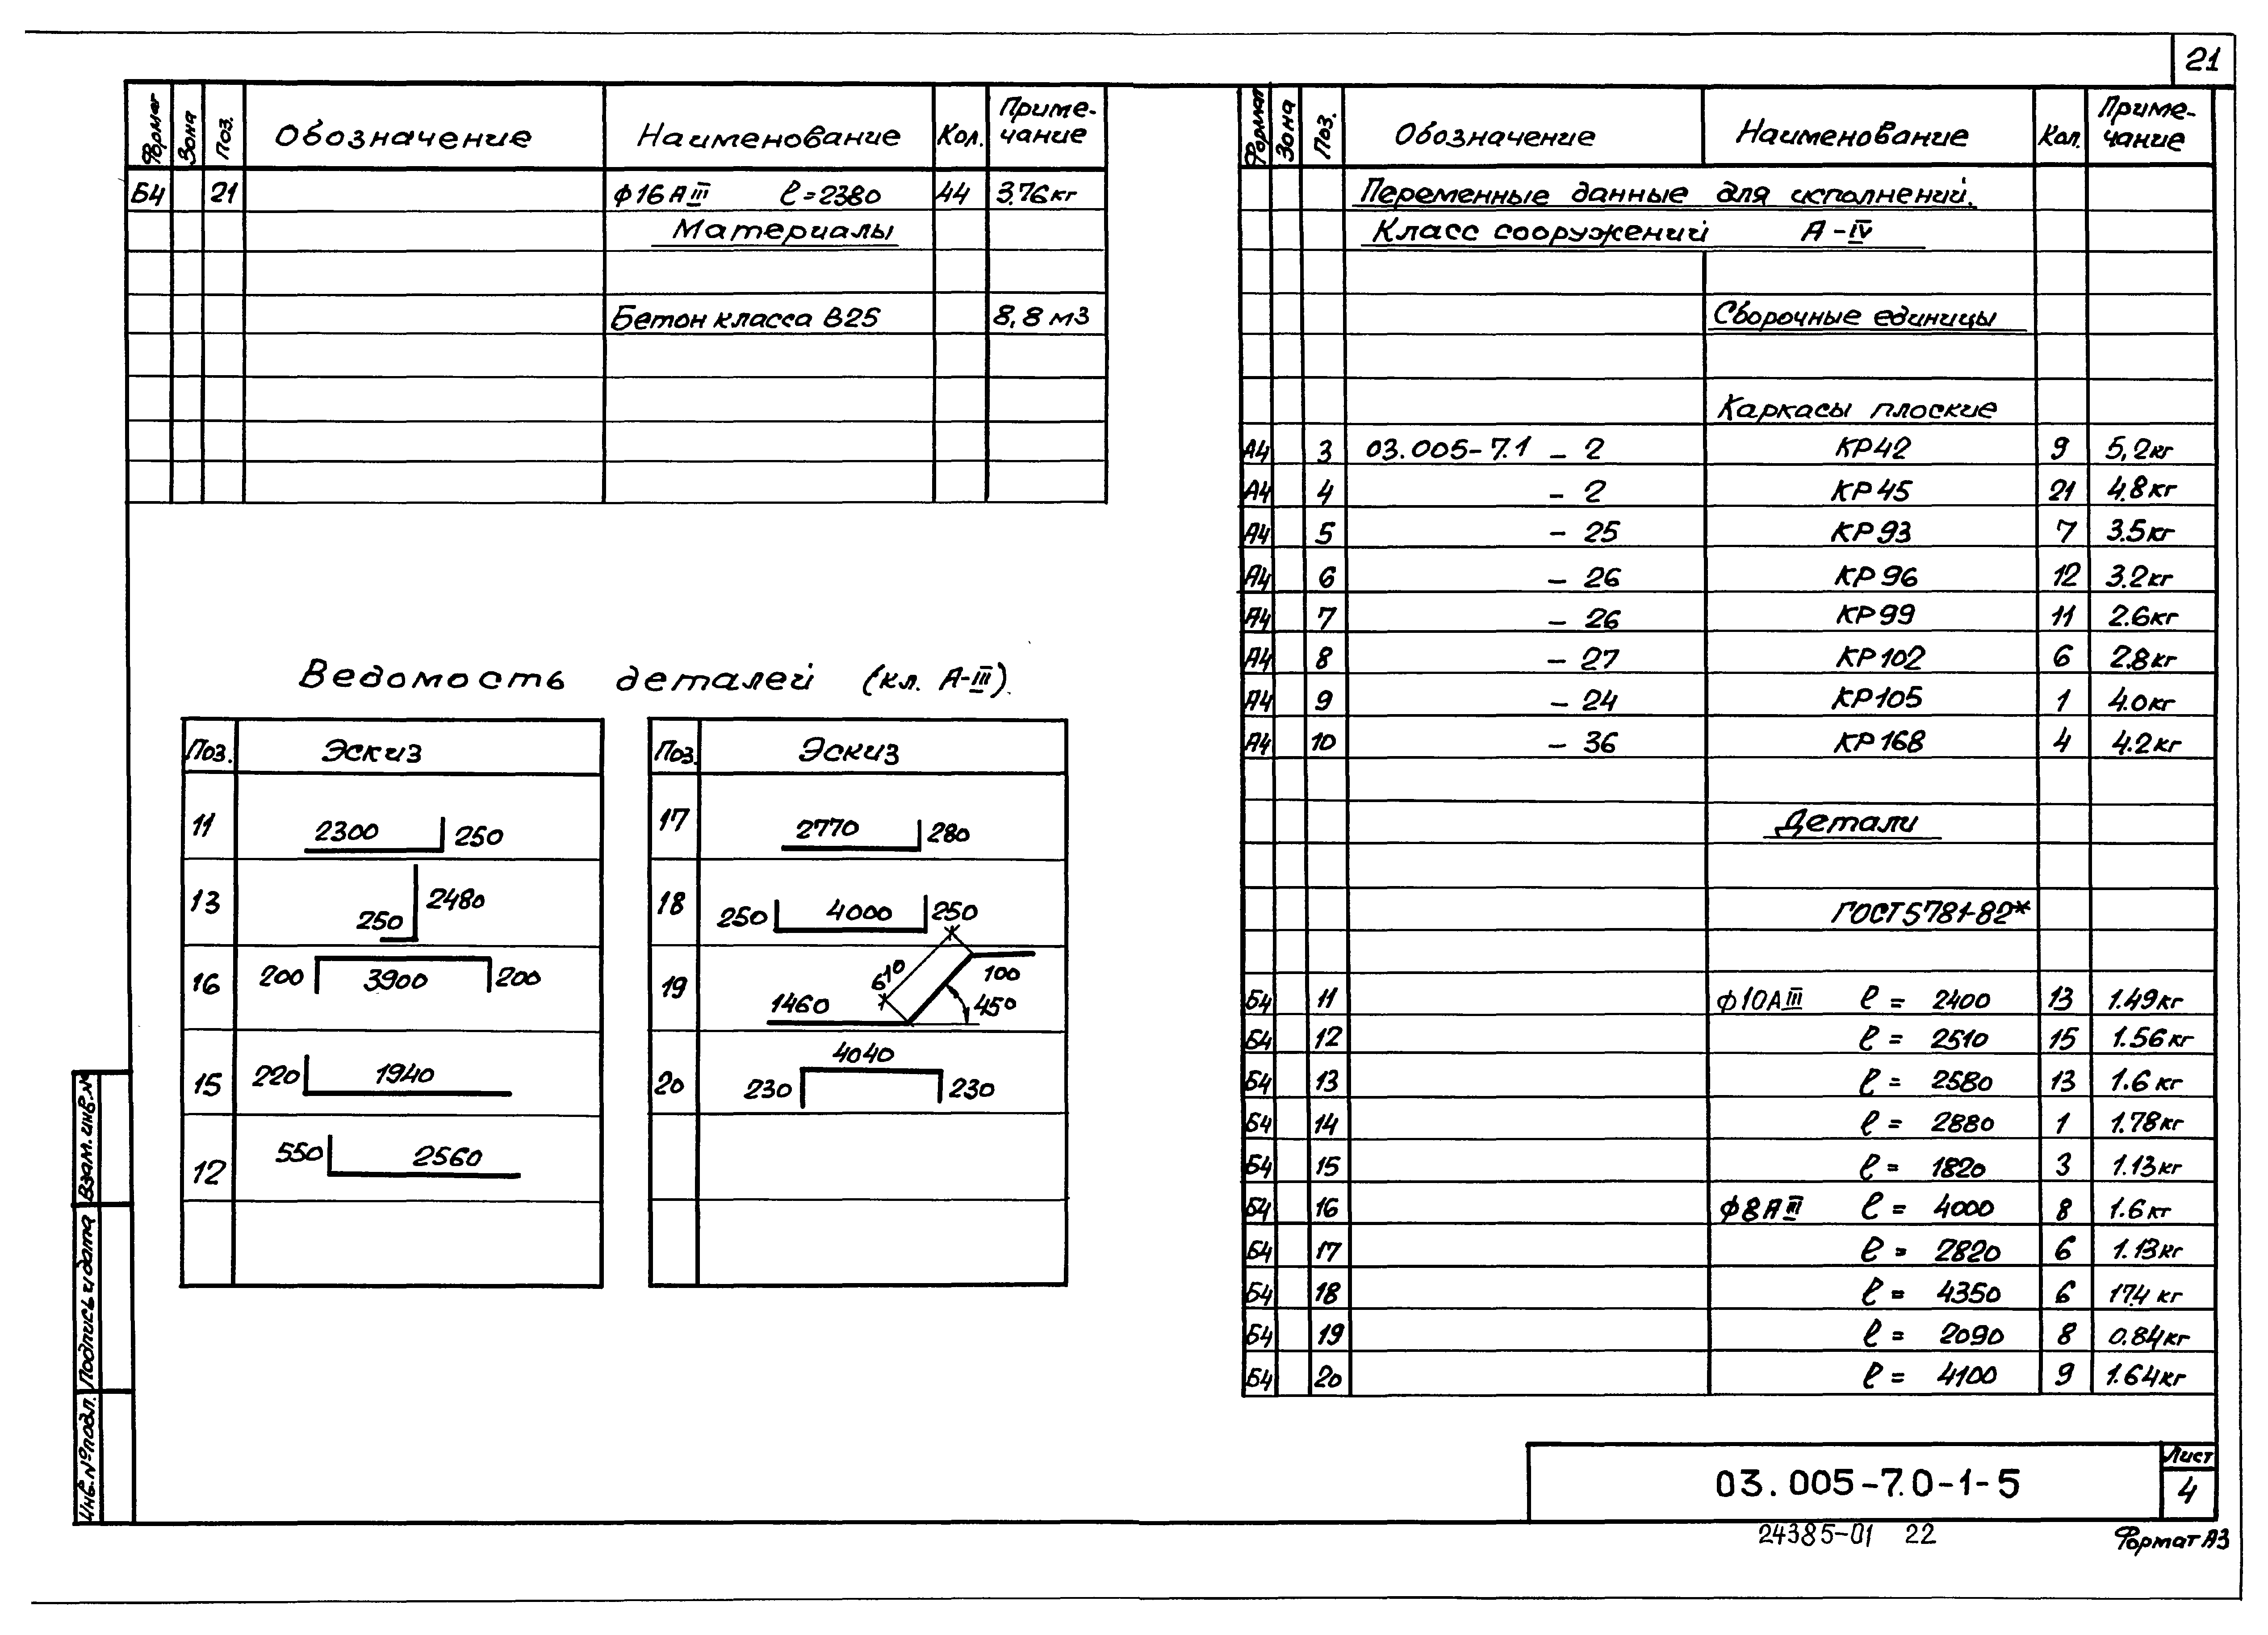 21
Формат Зона Поз. Обозначение Наименование Кол. Приме-чание
Б4 21 ф16АIII ℓ=2380 44 3.76кг
Материалы
Бетон класса В25 8,8 м3
Ведомость деталей (кл. А-III).
Поз. Эскиз
11 2300 250
13 250 2480
16 200 3900 200
15 220 1940
12 550 2560
Поз. Эскиз
17 2770 280
18 250 4000 250
19 1460 610 100 45°
20 230 4040 230
Формат Зона Поз. Обозначение Наименование Кол. Приме-чание
Переменные данные для исполнений.
Класс сооружений А-IV
Сборочные единицы
Каркасы плоские
А4 3 03.005-7.1 - 2 КР42 9 5,2кг
А4 4 - 2 КР45 21 4.8кг
А4 5 - 25 КР93 7 3.5кг
А4 6 - 26 КР96 12 3.2кг
А4 7 - 26 КР99 11 2.6кг
А4 8 - 27 КР102 6 2.8кг
А4 9 - 24 КР105 1 4.0кг
А4 10 - 36 КР168 4 4.2кг
Детали
ГОСТ5781-82*
Б4 11 ф10АIII ℓ = 2400 13 1.49кг
Б4 12 ℓ = 2510 15 1.56кг
Б4 13 ℓ = 2580 13 1.6кг
Б4 14 ℓ = 2880 1 1.78кг
Б4 15 ℓ = 1820 3 1.13кг
Б4 16 ф8АIII ℓ = 4000 8 1.6кг
Б4 17 ℓ = 2820 6 1.13кг
Б4 18 ℓ = 4350 6 17.4 кг
Б4 19 ℓ = 2090 8 0.84кг
Б4 20 ℓ = 4100 9 1.64кг
Взам. инв.№
Подпись и дата
Инв.№подл.
03.005-7.0-1-5
Лист
4
24385-01 22
Формат А3